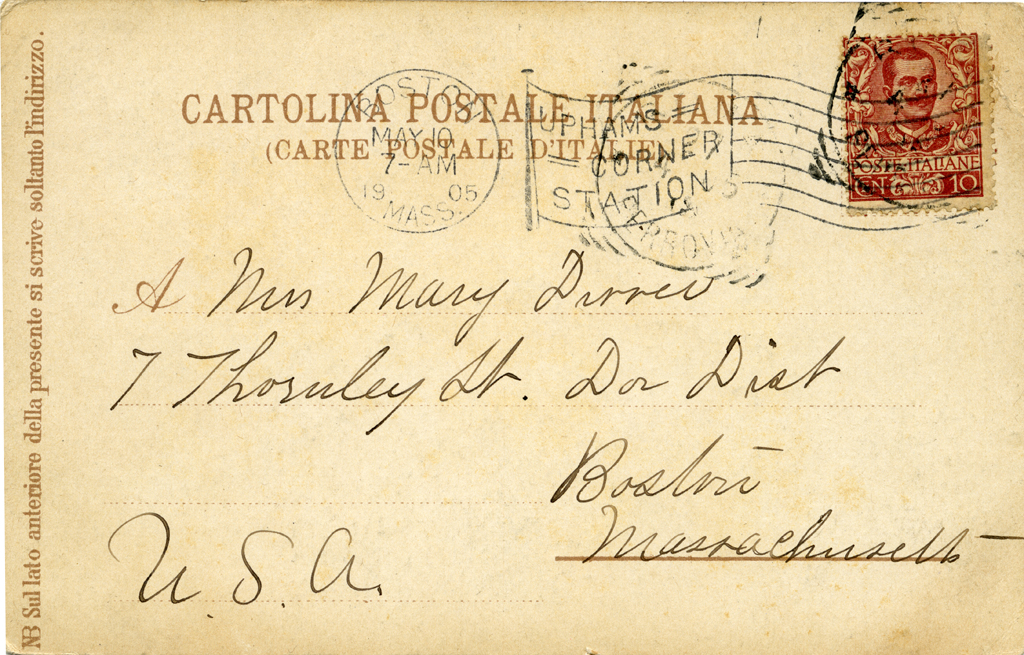 CARTOLINA POSTALE ITALIANA
(CARTE POSTALE D'ITALIE)
BOSTON
MAY 10
7-AM
19 05
MASS.
UPHAMS
CORNER
STATION
FERROVIA
POSTE·ITALIANE
CENT 10
A Miss Mary
7 Thornley St. Dor Dist
Boston
Massachusetts
U. S. A.
NB Sul lato anteriore della presente si scrive soltanto l'indirizzo.